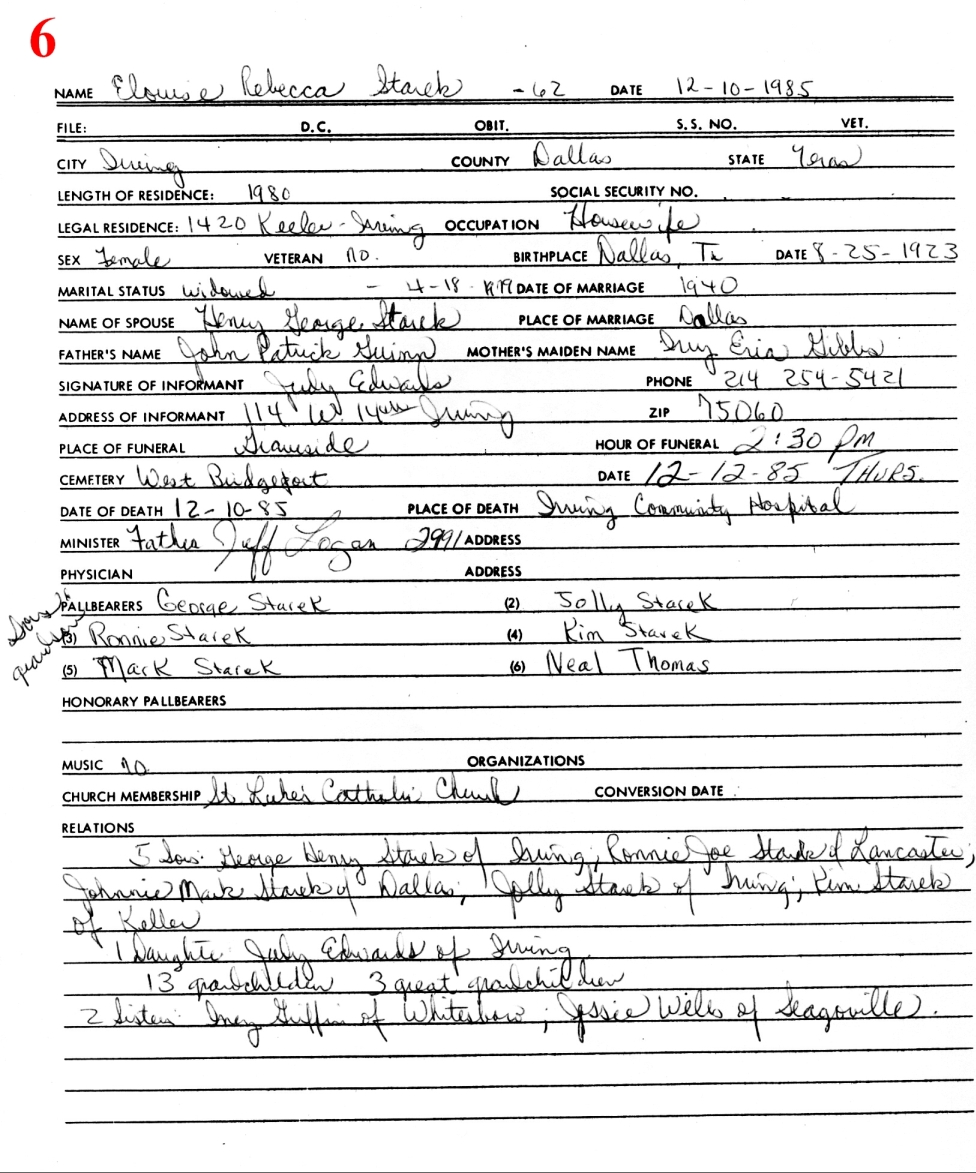 6
NAME Elouise Rebecca Starek - 62 DATE 12-10-1985
FILE: D.C. OBIT. S.S. NO. VET.
CITY Irving COUNTY Dallas STATE Texas
LENGTH OF RESIDENCE: 1980 SOCIAL SECURITY NO.
LEGAL RESIDENCE: 1420 Keeler - Irving OCCUPATION Housewife
SEX Female VETERAN no. BIRTHPLACE Dallas, Tx DATE 8-25-1923
MARITAL STATUS widowed - 4-18- DATE OF MARRIAGE 1940
NAME OF SPOUSE Henry George Starek PLACE OF MARRIAGE Dallas
FATHER'S NAME John Patrick Guinn MOTHER'S MAIDEN NAME Eria Gibbs
SIGNATURE OF INFORMANT Judy Edwards PHONE 214 254-5421
ADDRESS OF INFORMANT 114 W. Irving ZIP 75060
PLACE OF FUNERAL Graveside HOUR OF FUNERAL 2:30 PM
CEMETERY West Bridgeport DATE 12-12-85 THURS.
DATE OF DEATH 12-10-85 PLACE OF DEATH Irving Community Hospital
MINISTER Father Jeff Logan 2991 ADDRESS
PHYSICIAN ADDRESS
Sons &
grandsons
PALLBEARERS George Starek (2) Jolly Starek
(3) Ronnie Starek (4) Kim Starek
(5) Mark Starek (6) Neal Thomas
HONORARY PALLBEARERS
MUSIC no ORGANIZATIONS
CHURCH MEMBERSHIP St Luke's Catholic Church CONVERSION DATE
RELATIONS
5 Sons: George Henry Starek of Irving; Ronnie Joe Starek of Lancaster;
Johnnie Mark Starek of Dallas; Jolly Starek of Irving; Kim Starek
of Keller
1 Daughter Judy Edwards of Irving
13 grandchildren 3 great grandchildren
2 Sisters: Inez Griffin of Whitesboro; Jessie Wells of Seagoville.